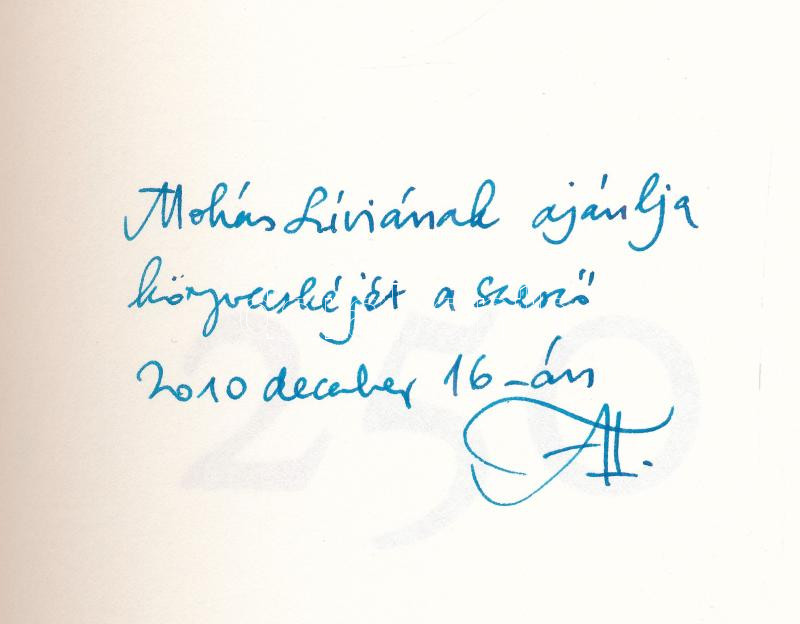 Mohás Líviának ajánlja
könyvecskéjét a szerző
2010 december 16-án
250